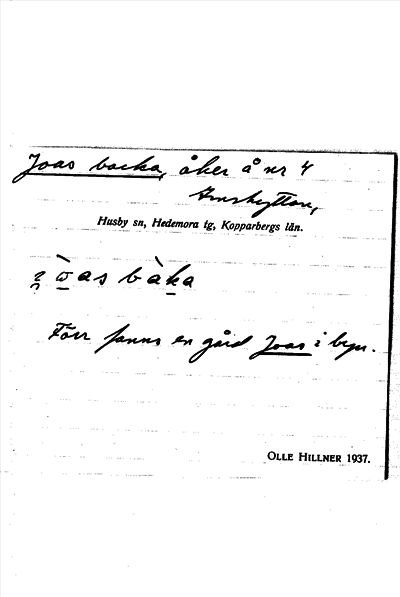 Joas backa, åker å nr 4
Husby sn, Hedemora tg, Kopparbergs län.
as bàka
Förr fanns en gård Joas i byn.
OLLE HILLNER 1937.